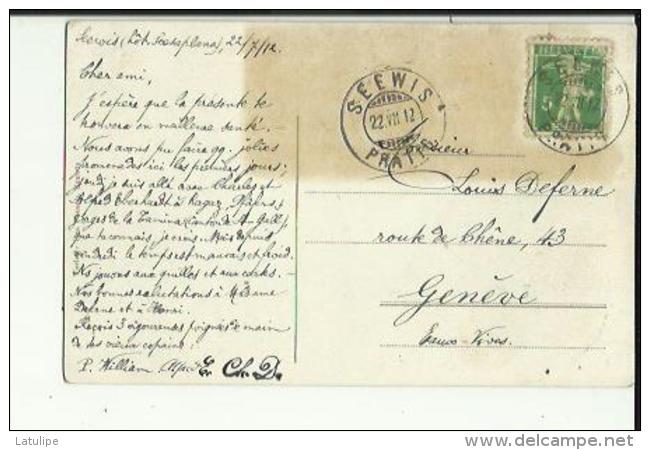 Seewis (hôt. Scesaplana), 22/7/12.
Cher ami,
J'espère que la présente te
trouvera en meilleure santé. -
Nous avons pu faire qq. jolies
promenades ici les premiers jours;
jeudi je suis allé avec Charles et
Alfred Eberhardt à Ragaz, Pfäfers,
gorges de la Tamina (Canton de St-Gall)
que tu connais, je crois. Mais depuis
vendredi le temps est mauvais et froid.
Ns jouons aux quilles et aux cartes. -
Nos bonnes salutations à Madame
Deferne et à Henri.
Reçois 3 vigoureuses poignées de main
de tes vieux copains:
P. William Alfred E. Ch. D.
SEEWIS
22.VII.12
PRÄTT
HELVETIA
5
Monsieur
Louis Deferne
route de Chêne, 43
Genève
Eaux-Vives.
Latulipe
www.delcampe.net